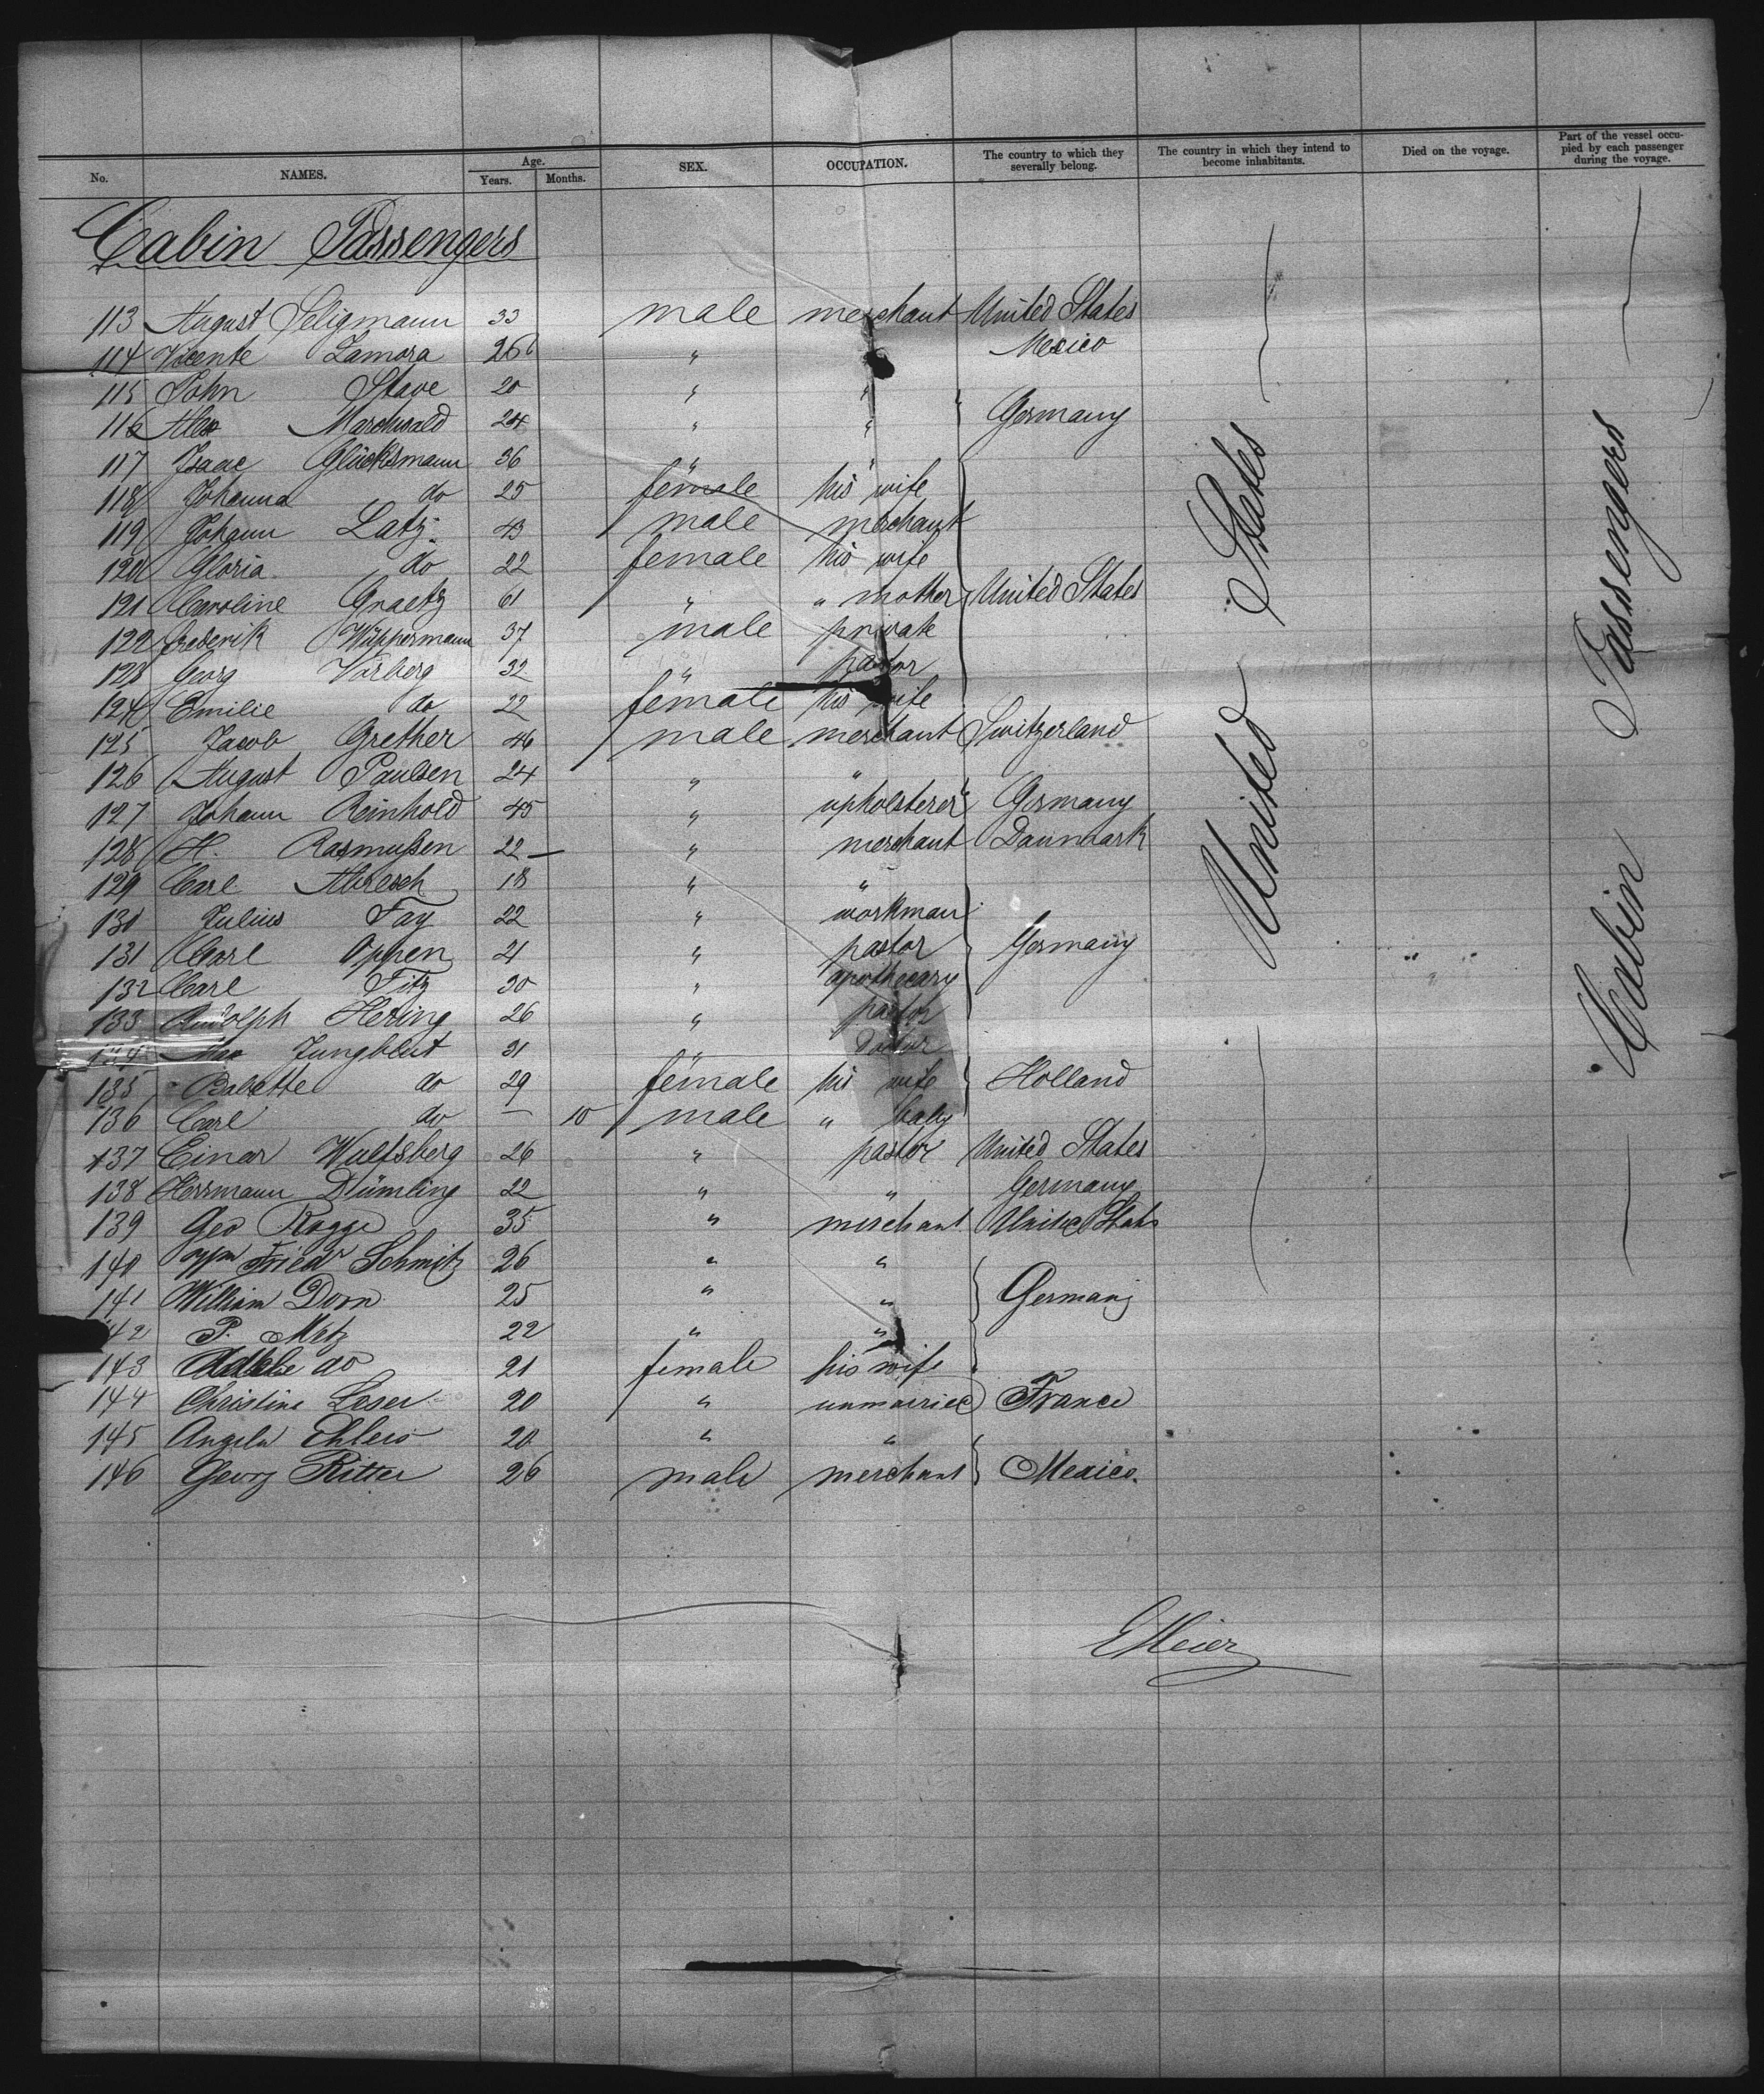 No. NAMES. Age. Years. Months. SEX. OCCUPATION. The country to which they severally belong. The country in which they intend to become inhabitants. Died on the voyage. Part of the vessel occupied by each passenger during the voyage.
Cabin Passengers
113 August Seligmann 33 male merchant United States
114 Vicente Zamora 26 " " Mexico
115 John Stave 20 " "
116 Alex Marchwald 24 " " Germany
117 Isaac Glücksmann 36 " "
118 Johanna do 25 female his wife
119 Johann Latz 43 male merchant
120 Gloria do 22 female his wife
121 Caroline Graetz 61 " " mother United States
122 Frederik Wüppermann 37 male private
123 Georg Vorberg 32 " pastor
124 Emilie do 22 female his wife
125 Jacob Grether 46 male merchant Switzerland
126 August Paulsen 24 " "
127 Johann Reinhold 45 " upholsterer Germany
128 H. Rasmussen 22 — " merchant Danmark
129 Carl Abresch 18 " "
130 Julius Fay 22 " workman
131 Carl Oppen 21 " pastor Germany
132 Carl Fitz 30 " apothecary
133 Rudolph Hering 26 " pastor
134 Max Jungblut 31 " Doctor
135 Babette do 29 female his wife Holland
136 Carl do — 10 male " baby
137 Einar Wulfsberg 26 " pastor United States
138 Herrmann Dümling 22 " " Germany
139 Geo Rogge 35 " merchant United States
140 Wm Friedr Schmitz 26 " "
141 William Dorn 25 " " Germany
142 P. Metz 22 " "
143 do 21 female his wife
144 Christine Leser 20 " unmarried France
145 Angela Ehlers 20 " "
146 Georg Ritter 26 male merchant Mexico.
United States
Cabin Passengers
EMeier